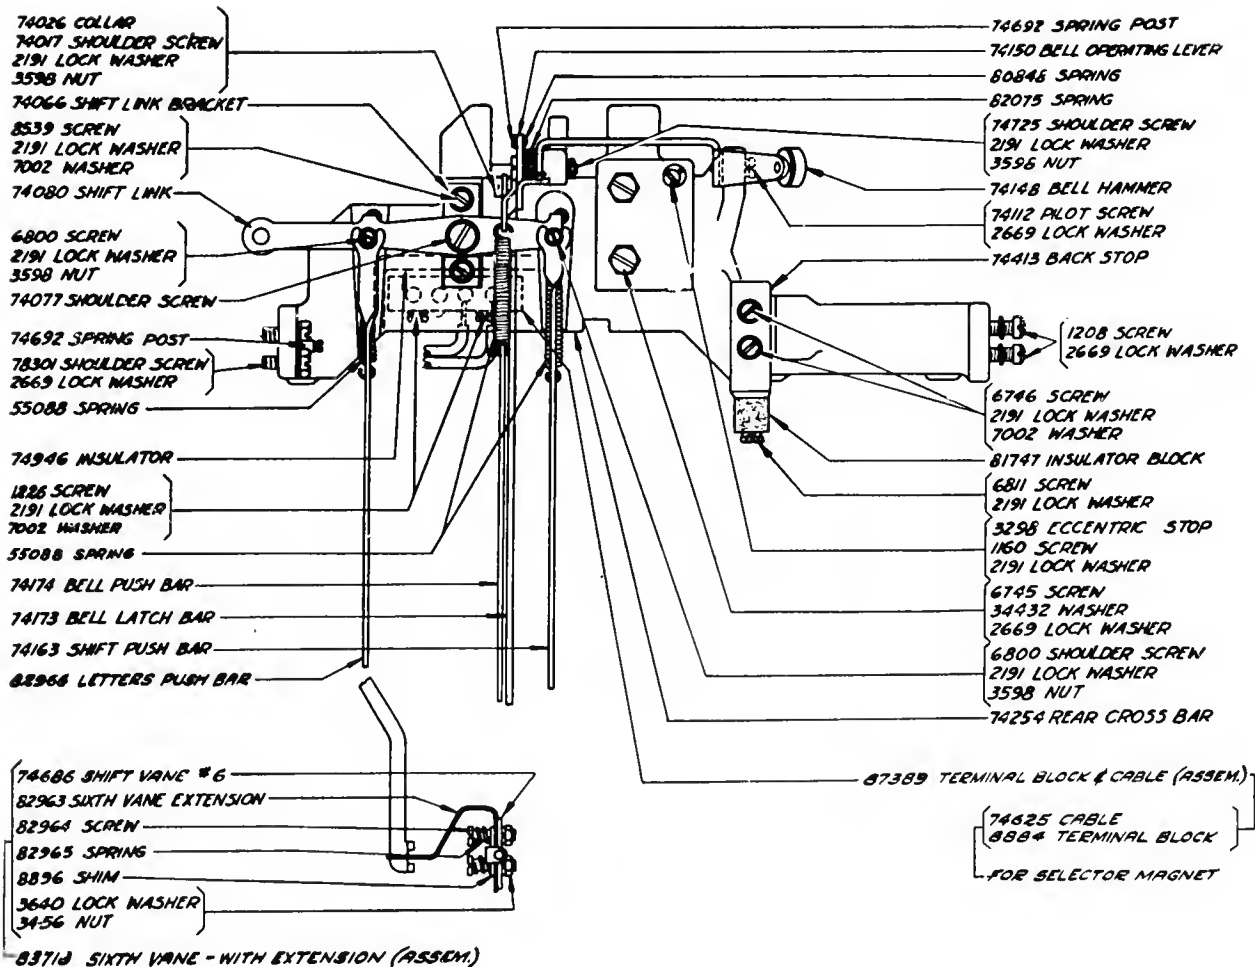 74026 COLLAR
74017 SHOULDER SCREW
2191 LOCK WASHER
3598 NUT
74066 SHIFT LINK BRACKET
8539 SCREW
2191 LOCK WASHER
7002 WASHER
74080 SHIFT LINK
6800 SCREW
2191 LOCK WASHER
3598 NUT
74077 SHOULDER SCREW
74692 SPRING POST
78301 SHOULDER SCREW
2669 LOCK WASHER
55088 SPRING
74946 INSULATOR
1226 SCREW
2191 LOCK WASHER
7002 WASHER
55088 SPRING
74174 BELL PUSH BAR
74173 BELL LATCH BAR
74163 SHIFT PUSH BAR
82966 LETTERS PUSH BAR
74686 SHIFT VANE #6
82963 SIXTH VANE EXTENSION
82964 SCREW
82965 SPRING
8896 SHIM
3640 LOCK WASHER
3456 NUT
SIXTH VANE - WITH EXTENSION (ASSEM.)
74692 SPRING POST
74150 BELL OPERATING LEVER
80848 SPRING
82075 SPRING
74725 SHOULDER SCREW
2191 LOCK WASHER
3598 NUT
74148 BELL HAMMER
74112 PILOT SCREW
2669 LOCK WASHER
74413 BACK STOP
1208 SCREW
2669 LOCK WASHER
6746 SCREW
2191 LOCK WASHER
7002 WASHER
81747 INSULATOR BLOCK
6811 SCREW
2191 LOCK WASHER
3298 ECCENTRIC STOP
1160 SCREW
2191 LOCK WASHER
6745 SCREW
34432 WASHER
2669 LOCK WASHER
6800 SHOULDER SCREW
2191 LOCK WASHER
3598 NUT
74254 REAR CROSS BAR
87389 TERMINAL BLOCK & CABLE (ASSEM.)
74625 CABLE
8884 TERMINAL BLOCK
FOR SELECTOR MAGNET